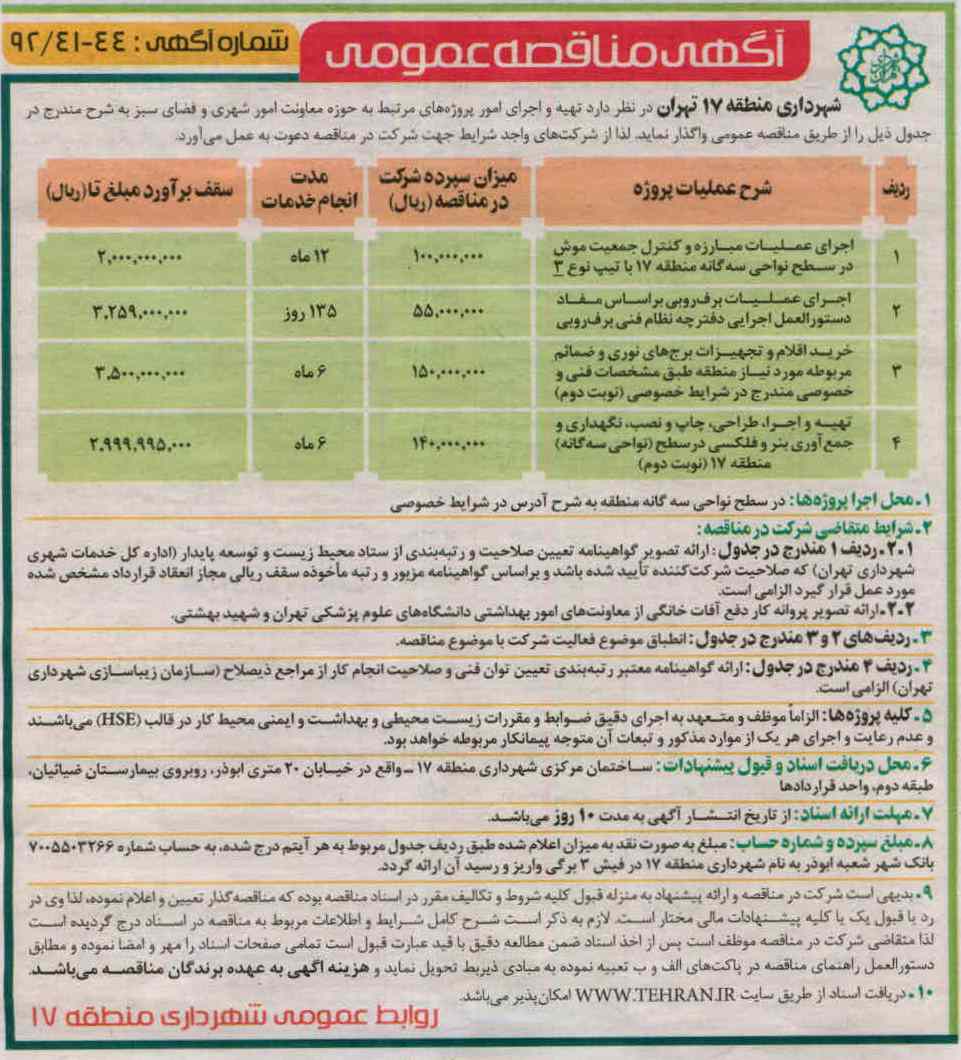 آگهی مناقصه عمومی
شماره آگهی : ۴۴-۹۲/۴۱
شهرداری منطقه ۱۷ تهران در نظر دارد تهیه و اجرای امور پروژه‌های مرتبط به حوزه معاونت امور شهری و فضای سبز به شرح مندرج در
جدول ذیل را از طریق مناقصه عمومی واگذار نماید. لذا از شرکت‌های واجد شرایط جهت شرکت در مناقصه دعوت به عمل می‌آورد.
ردیف شرح عملیات پروژه میزان سپرده شرکت در مناقصه (ریال) مدت انجام خدمات سقف برآورد مبلغ تا (ریال)
۱ اجرای عملیات مبارزه و کنترل جمعیت موش ۱۰۰,۰۰۰,۰۰۰ ۱۲ ماه ۲,۰۰۰,۰۰۰,۰۰۰
در سطح نواحی سه گانه منطقه ۱۷ با تیپ نوع ۳
۲ اجرای عملیات برف‌روبی براساس مفاد ۵۵,۰۰۰,۰۰۰ ۱۳۵ روز ۳,۲۵۹,۰۰۰,۰۰۰
دستورالعمل اجرایی دفترچه نظام فنی برف‌روبی
۳ خرید اقلام و تجهیزات برج‌های نوری و ضمائم ۱۵۰,۰۰۰,۰۰۰ ۶ ماه ۳,۵۰۰,۰۰۰,۰۰۰
مربوطه مورد نیاز منطقه طبق مشخصات فنی و
خصوصی مندرج در شرایط خصوصی (نوبت دوم)
۴ تهیه و اجرا، طراحی، چاپ و نصب، نگهداری و ۱۴۰,۰۰۰,۰۰۰ ۶ ماه ۲,۹۹۹,۹۹۵,۰۰۰
جمع‌آوری بنر و فلکسی در سطح (نواحی سه گانه)
منطقه ۱۷ (نوبت دوم)
۱-محل اجرا پروژه‌ها: در سطح نواحی سه گانه منطقه به شرح آدرس در شرایط خصوصی
۲-شرایط متقاضی شرکت در مناقصه:
۲.۱-ردیف ۱ مندرج در جدول: ارائه تصویر گواهینامه تعیین صلاحیت و رتبه‌بندی از ستاد محیط زیست و توسعه پایدار (اداره کل خدمات شهری
شهرداری تهران) که صلاحیت شرکت‌کننده تأیید شده باشد و براساس گواهینامه مزبور و رتبه مأخوذه سقف ریالی مجاز انعقاد قرارداد مشخص شده
مورد عمل قرار گیرد الزامی است.
۲.۲-ارائه تصویر پروانه کار دفع آفات خانگی از معاونت‌های امور بهداشتی دانشگاه‌های علوم پزشکی تهران و شهید بهشتی.
۳- ردیف‌های ۲ و ۳ مندرج در جدول: انطباق موضوع فعالیت شرکت با موضوع مناقصه.
۴- ردیف ۴ مندرج در جدول: ارائه گواهینامه معتبر رتبه‌بندی تعیین توان فنی و صلاحیت انجام کار از مراجع ذیصلاح (سازمان زیباسازی شهرداری
تهران) الزامی است.
۵-کلیه پروژه‌ها: الزاماً موظف و متعهد به اجرای دقیق ضوابط و مقررات زیست محیطی و بهداشت و ایمنی محیط کار در قالب (HSE) می‌باشند
و عدم رعایت و اجرای هر یک از موارد مذکور و تبعات آن متوجه پیمانکار مربوطه خواهد بود.
۶-محل دریافت اسناد و قبول پیشنهادات: ساختمان مرکزی شهرداری منطقه ۱۷ - واقع در خیابان ۲۰ متری ابوذر، روبروی بیمارستان ضیائیان،
طبقه دوم، واحد قراردادها
۷-مهلت ارائه اسناد: از تاریخ انتشار آگهی به مدت ۱۰ روز می‌باشد.
۸-مبلغ سپرده و شماره حساب: مبلغ به صورت نقد به میزان اعلام شده طبق ردیف جدول مربوط به هر آیتم درج شده، به حساب شماره ۷۰۰۵۵۰۳۲۶۶
بانک شهر شعبه ابوذر به نام شهرداری منطقه ۱۷ در فیش ۳ برگی واریز و رسید آن ارائه گردد.
۹-بدیهی است شرکت در مناقصه و ارائه پیشنهاد به منزله قبول کلیه شروط و تکالیف مقرر در اسناد مناقصه بوده که مناقصه‌گذار تعیین و اعلام نموده، لذا وی در
رد یا قبول یک یا کلیه پیشنهادات مالی مختار است. لازم به ذکر است شرح کامل شرایط و اطلاعات مربوط به مناقصه در اسناد درج گردیده است
لذا متقاضی شرکت در مناقصه موظف است پس از اخذ اسناد ضمن مطالعه دقیق با قید عبارت قبول است تمامی صفحات اسناد را مهر و امضا نموده و مطابق
دستورالعمل راهنمای مناقصه در پاکت‌های الف و ب تعبیه نموده به مبادی ذیربط تحویل نماید و هزینه آگهی به عهده برندگان مناقصه می‌باشد.
۱۰-دریافت اسناد از طریق سایت WWW.TEHRAN.IR امکان‌پذیر می‌باشد.
روابط عمومی شهرداری منطقه ۱۷